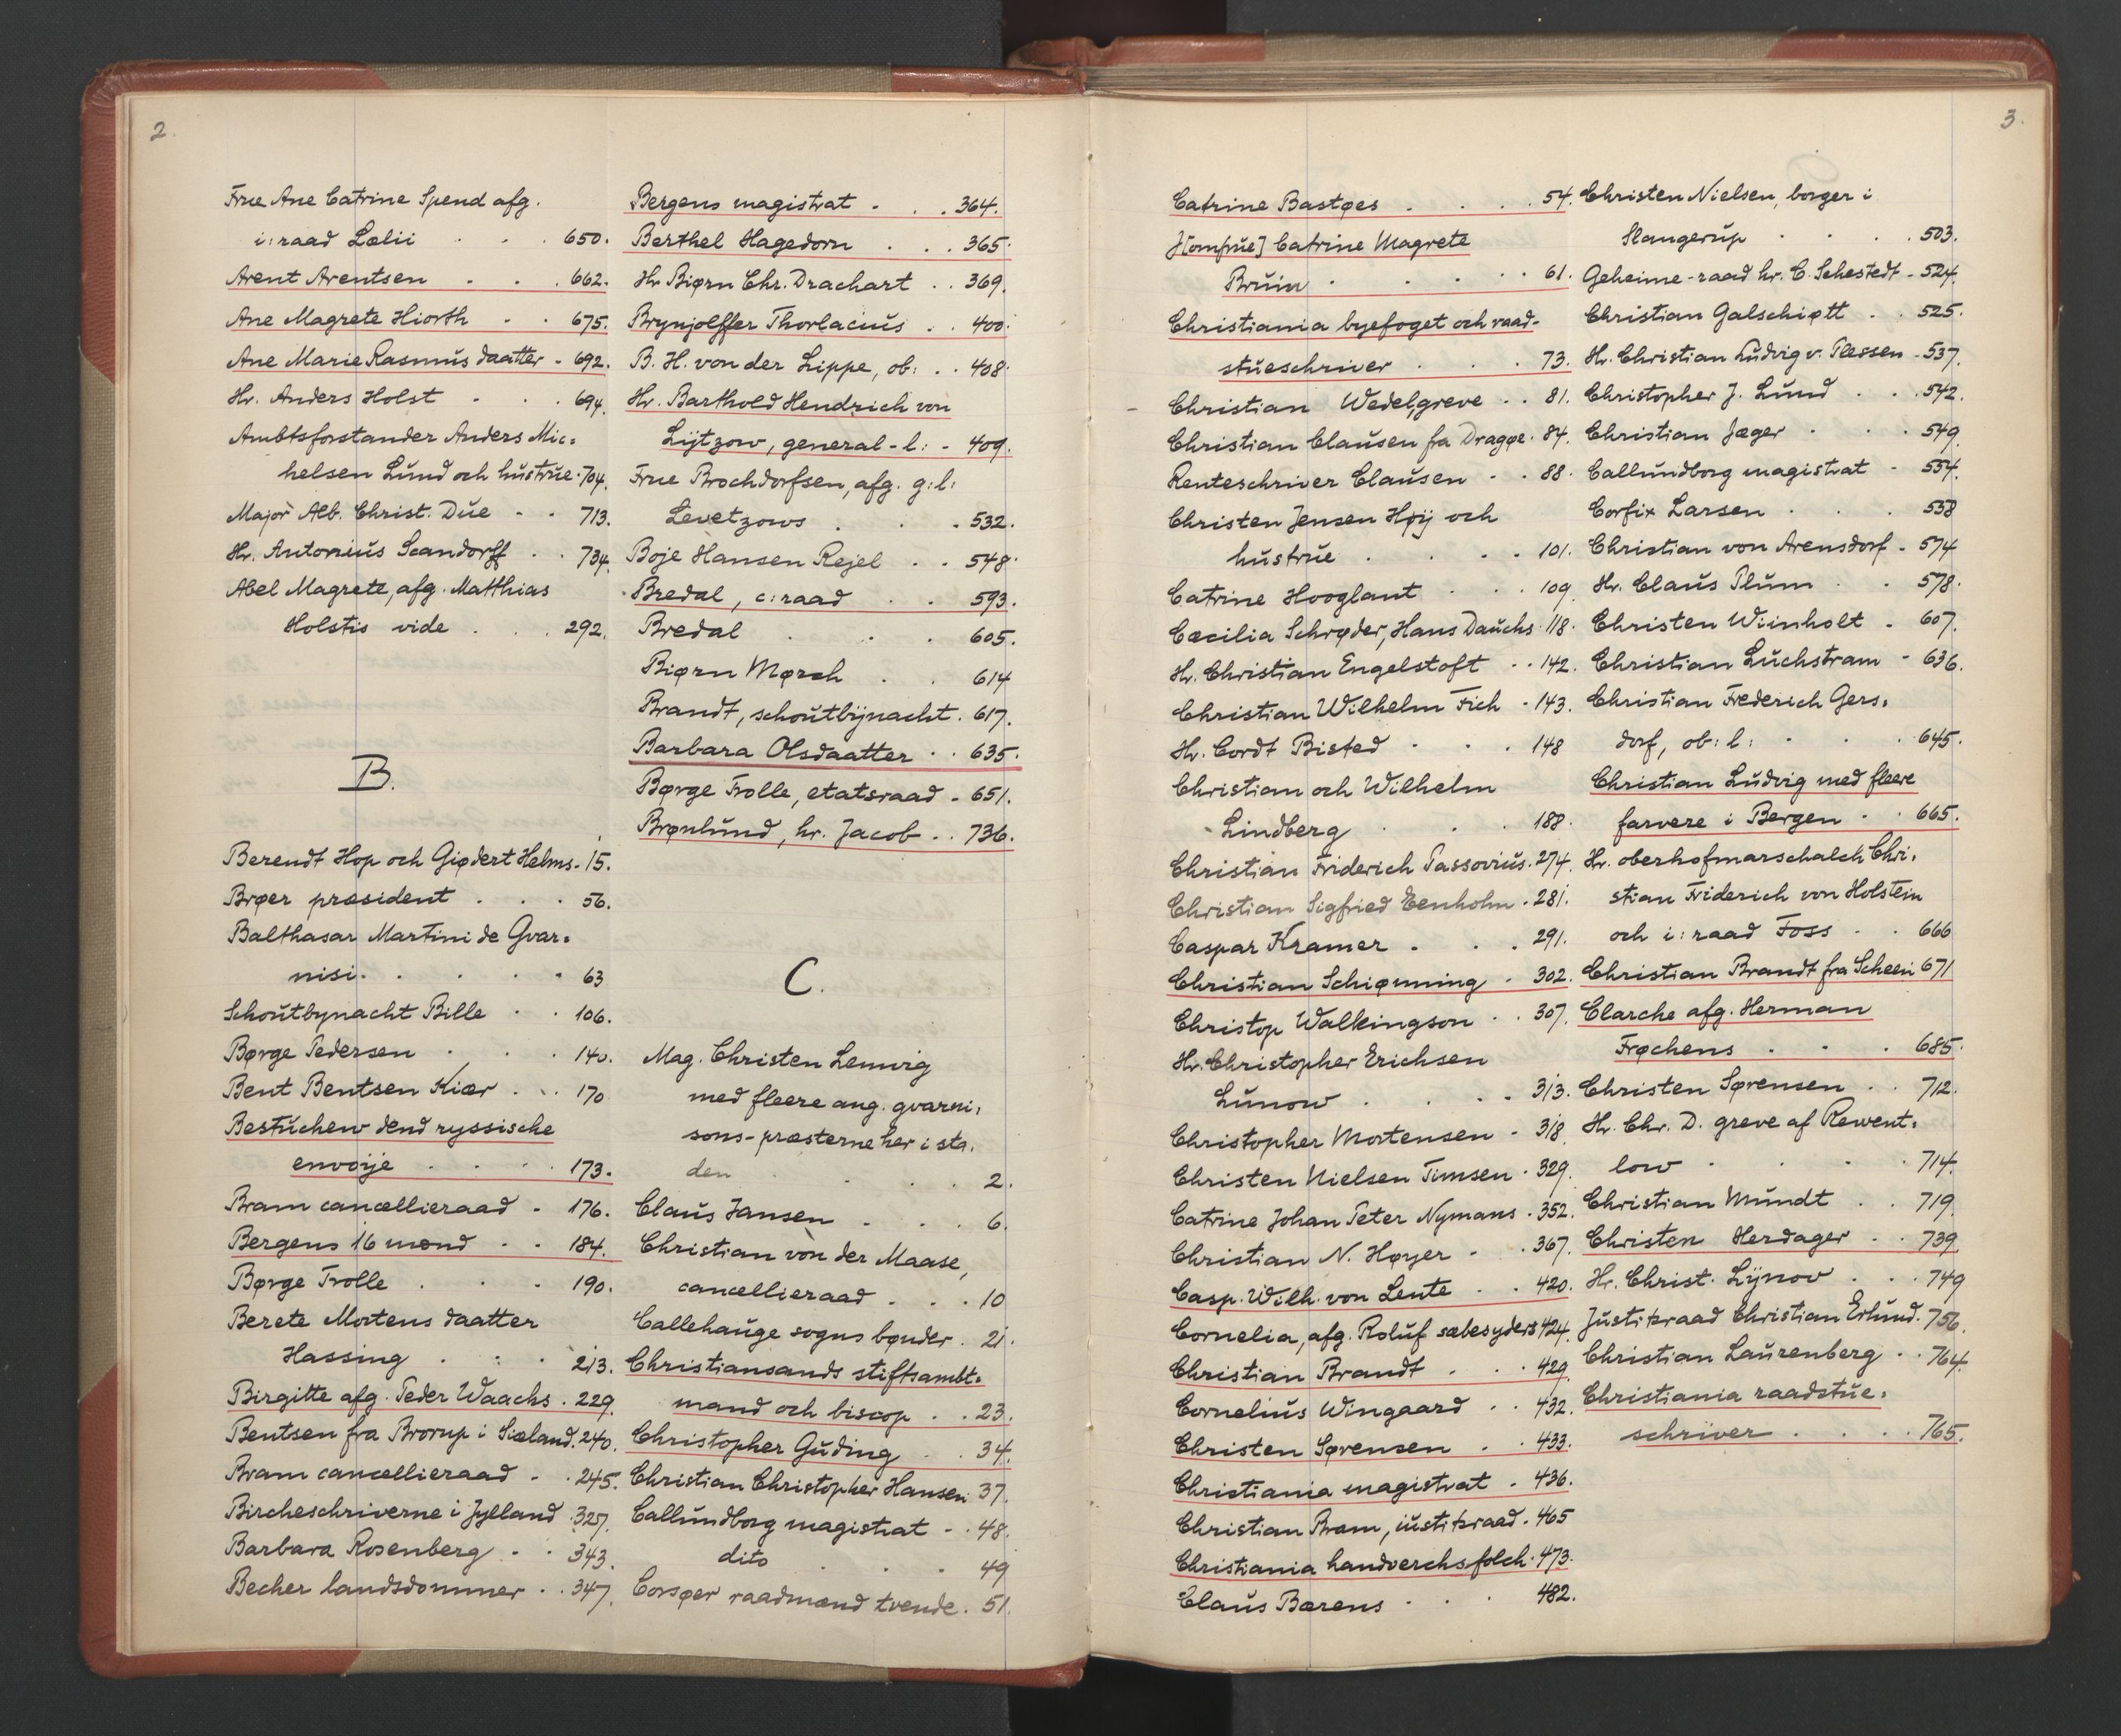 2.
Frue Ane Catrine Spend afg.
i: raad Lælii . . . 650.
Arent Arentsen . . . 662.
Ane Magrete Hiorth . . 675.
Ane Marie Rasmus daatter - 692.
Hr. Anders Holst . . . 694.
Ambtsforstander Anders Mic=
helsen Lund och hustrue . 704.
Major Alb. Christ. Due - . 713.
Hr. Antonius Scandorff . . 734.
Abel Magrete, afg. Matthias
Holstis vide . . . 292.
B.
Berendt Hop och Giødert Helms - 15.
Brøer præsident . . . 56.
Balthasar Martini de Gvar=
nisi . . . . . 63
Schoutbynacht Bille . . 106.
Børge Pedersen . . . 140.
Bent Bentsen Kiær . . . 170
Bestuchew dend ryssische
envoije . . . . 173.
Bram cancellieraad - 176.
Bergens 16 mænd . . 184.
Børge Trolle . . . 190.
Berete Mortens daatter
Hassing . . . 213.
Birgitte afg. Peder Waachs . 229.
Bentsen fra Brorup i Siæland. 240.
Bram cancellieraad - . 245.
Bircheschriverne i Jylland . 327.
Barbara Rosenberg - . 343.
Becher landsdommer . . 347.
Bergens magistrat . . . 364.
Berthel Hagedorn . . . 365.
Hr. Biørn Chr. Drachart . . 369.
Brynjolffer Thorlacius . . 400.
B. H. von der Lippe, ob: . . 408.
Hr. Barthold Hendrich von
Lijtzow, general-l: - 409.
Frue Brochdorfsen, afg. g: l:
Levetzows . . . 532.
Boje Hansen Rejel . . 548.
Bredal, c: raad . . 593.
Bredal . . . 605.
Biørn Mørch . . 614
Brandt, schoutbijnacht . 617.
Barbara Olsdaatter . . 635.
Børge Trolle, etatsraad - 651.
Brønlund, hr. Jacob . . 736.
C.
Mag. Christen Lemvig
med fleere ang. gvarni=
sons-præsterne her i sta=
den . . . . 2.
Claus Jansen . . . 6.
Christian von der Maase,
cancellieraad . . . 10
Callehauge sogns bønder . 21.
Christiansands stiftsambt=
mand och biscop . . 23.
Christopher Guding . . 34.
Christian Christopher Hansen 37.
Callundborg magistrat - . 48.
dito . . . 49
Corsøer raadmænd tvende . 51.
3.
Catrine Bastøes . . . . 54.
J[omfrue] Catrine Magrete
Bruin . . . . . 61.
Christiania byefoget och raad-
stueschriver . . . 73.
Christian Wedel, greve . . 81.
Christian Clausen fra Dragøe . 84.
Renteschriver Clausen - . 88.
Christen Jensen Høij och
hustrue . . . . 101.
Catrine Hooglant . . . 109.
Cæcilia Schrøder, Hans Dauchs . 118.
Hr. Christian Engelstoft . . 142.
Christian Wilhelm Fich . 143.
Hr. Cordt Bisted . . . 148
Christian och Wilhelm
Lindberg . . . 188.
Christian Friderich Passovius. 274.
Christian Sigfried Eenholm . 281.
Caspar Kramer . . . 291.
Christian Schiønning . 302.
Christop Walkingson . . 307.
Hr. Christopher Erichsen
Lunow . . . . 313.
Christopher Mortensen - 318.
Christen Nielsen Timsen . 329.
Catrine Johan Peter Nymans . 352.
Christian N. Høyer - . 367.
Casp. Wilh. von Lente . . 420.
Cornelia, afg. Roluf sæbesyders 424.
Christian Brandt . . . 429.
Cornelius Wingaard . . 432.
Christen Sørensen . . 433.
Christiania magistrat . 436.
Christian Bram, iustitsraad . 465
Christiania handverchsfolch . 473.
Claus Bærens . . . 482.
Christen Nielsen, borger i
Slangerup . . . . 503.
Geheime-raad hr. C. Sehestedt - 524.
Christian Galschiøtt . . 525.
Hr. Christian Ludvig v. Plessen - 537.
Christopher J. Lund . . . 542.
Christian Jæger . . . 549
Callundborg magistrat - 554.
Corfix Larsen . . . 558
Christian von Arensdorf - 574
Hr. Claus Plum . . 578.
Christen Wiinholt . 607.
Christian Luchstram - 636.
Christian Frederich Gers=
dorf, ob: l: . . . 645.
Christian Ludvig med fleere
farvere i Bergen . . 665.
Hr. oberhofmarschalch Chri=
stian Friderich von Holstein
och i: raad Foss . . 666
Christian Brandt fra Scheen 671
Clarche afg. Herman
Frøchens . . . 685.
Christen Sørensen . . 712.
Hr. Chr. D. greve af Rewent=
low . . . . 714.
Christian Mundt . . 719.
Christen Herdager . . 739.
Hr. Christ. Lijnov . . . 749
Justitsraad Christian Erlund. 756.
Christian Laurenberg . . 764.
Christiania raadstue=
schriver . . . . 765.